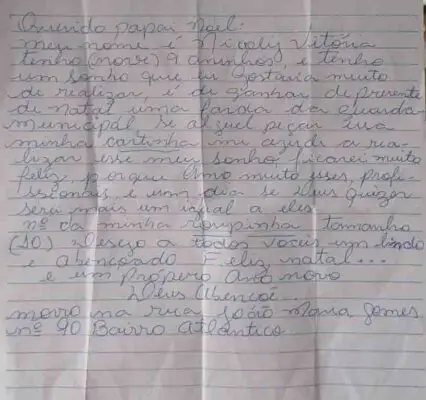 Querido papai Noel:
meu nome é Nicoly Vitória
tenho (nove) 9 aninhos, e tenho
um sonho que eu gostaria muito
de realizar, é de ganhar de presente
de natal uma farda da guarda
municipal se alguel pegar essa
minha cartinha mi ajude a rea-
lizar esse meu sonho, ficarei muito
feliz, porque Amo muito esses, profe-
ssionais, e um dia se Deus quizer
serei mais um igual a eles
nº da minha roupinha tamanho
(10) Desejo a todos vocês um lindo
e abençoado Feliz natal...
e um Própero Ano novo
Deus Abençoê...
moro na rua João Maria gomes
nº 90 Bairro Atlântico